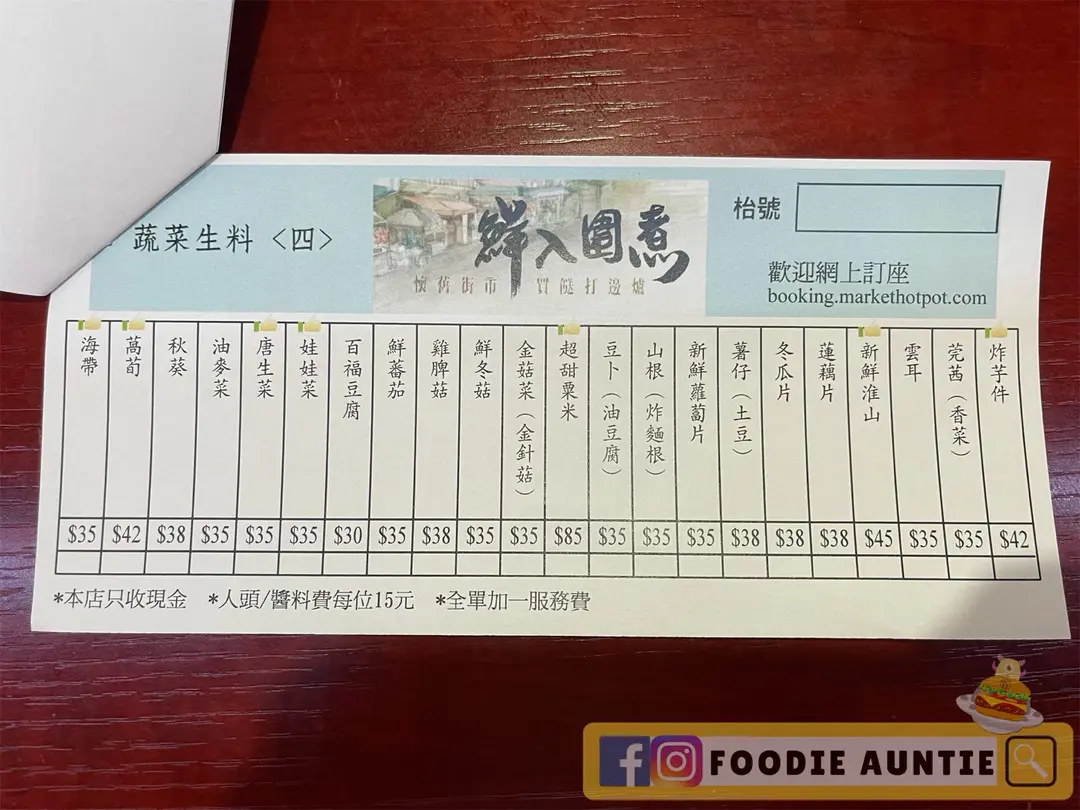 蔬菜生料 <四>
鮮入圍煮
懷舊街市 買餸打邊爐
枱號
歡迎網上訂座
booking.markethotpot.com
炸芋件 $42
芫茜（香菜） $35
雲耳 $35
新鮮淮山 $45
蓮藕片 $38
冬瓜片 $38
薯仔（土豆） $38
新鮮蘿蔔片 $35
山根（炸麵根） $35
豆卜（油豆腐） $35
超甜粟米 $85
金菇菜（金針菇） $35
鮮冬菇 $35
雞脾菇 $38
鮮番茄 $35
百福豆腐 $30
娃娃菜 $35
唐生菜 $35
油麥菜 $35
秋葵 $38
萵荀 $42
海帶 $35
*本店只收現金 *人頭/醬料費每位15元 *全單加一服務費
FOODIE AUNTIE